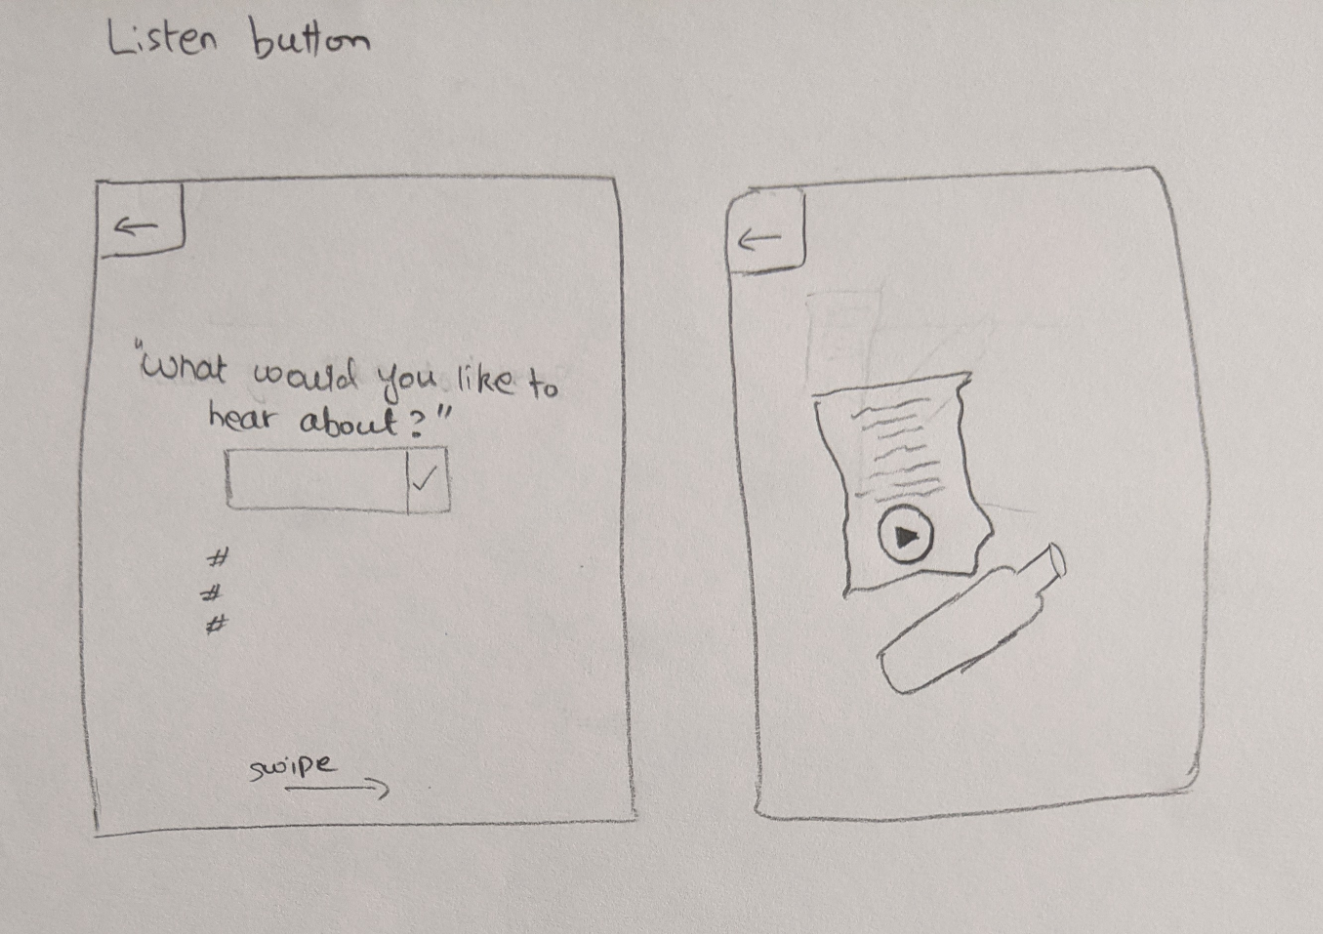 Listen button
"what would you like to
hear about?"
#
#
#
swipe